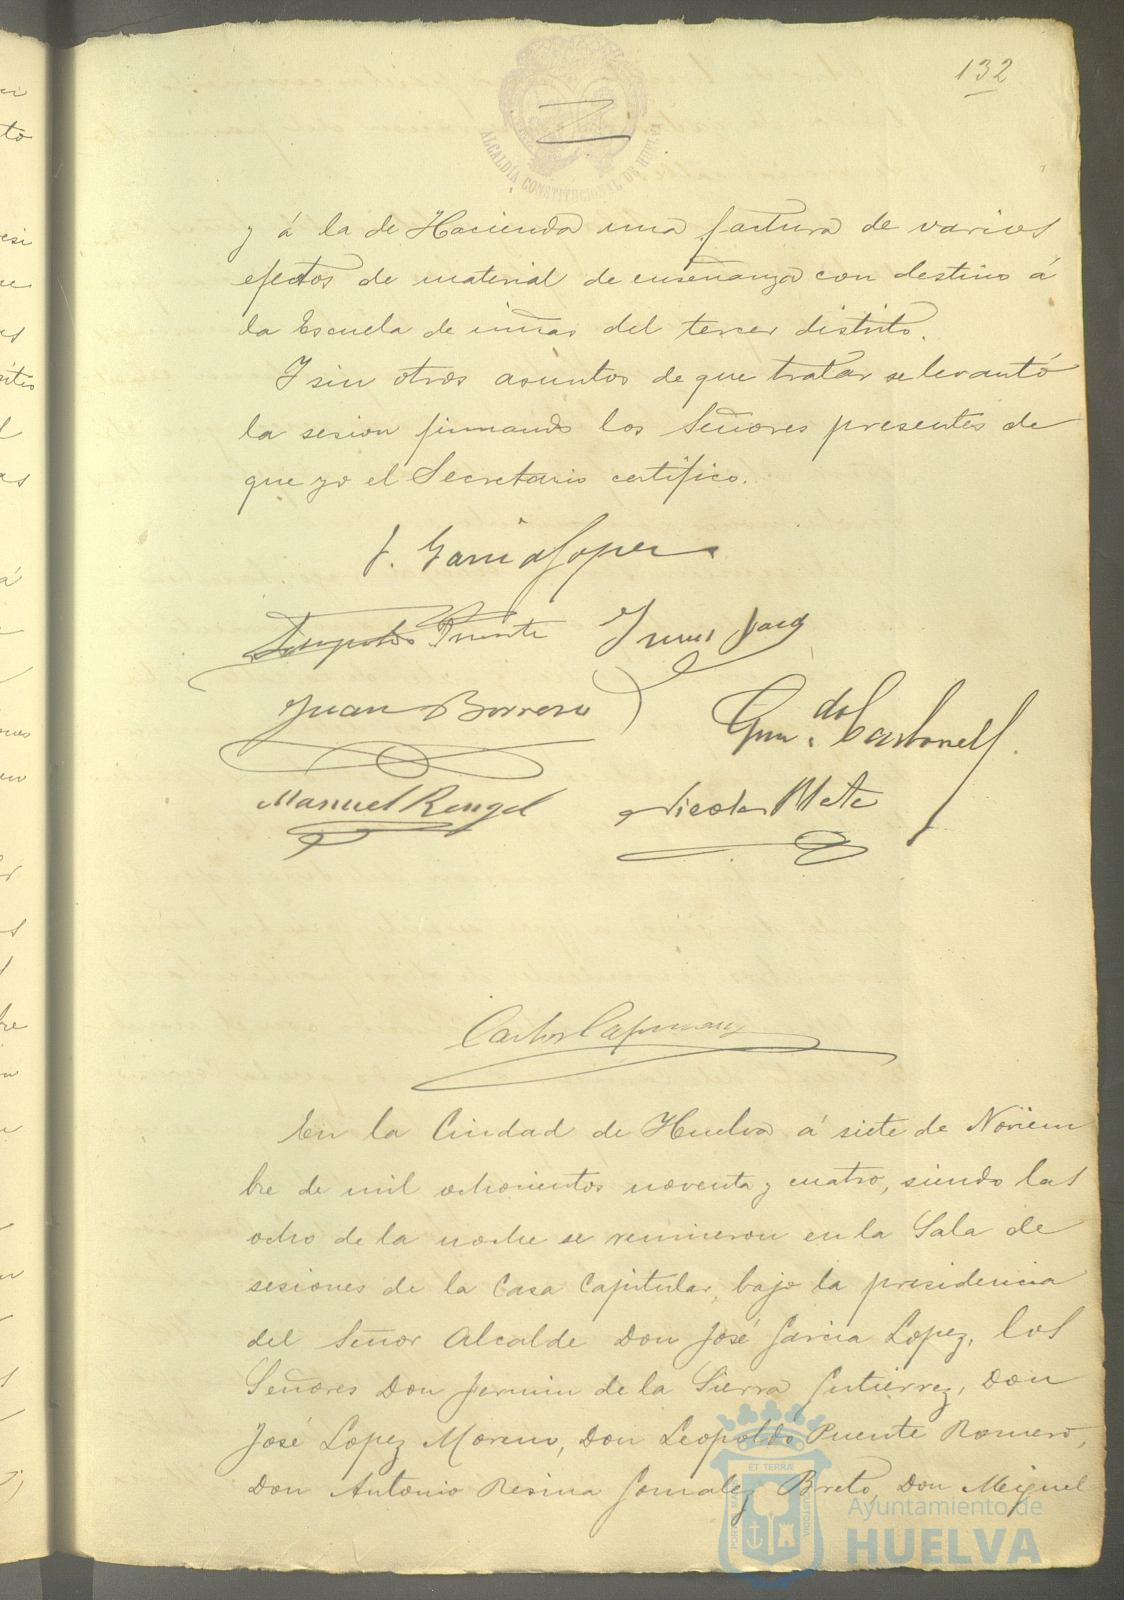 132
ALCALDÍA CONSTITUCIONAL DE HUELVA
y á la de Hacienda una factura de varios
efectos de material de enseñanza con destino á
la Escuela de niñas del tercer distrito.
Y sin otros asuntos de que tratar se levantó
la sesion firmando los Señores presentes de
que yo el Secretario certifico.
J. Garcia Lopez
Leopoldo Puente
Juan Borrero
Gum.do Carbonell
Manuel Rengel
Nicolas
Carlos
En la Ciudad de Huelva á siete de Noviem
bre de mil ochocientos noventa y cuatro, siendo las
ocho de la noche se reunieron en la Sala de
sesiones de la Casa Capitular, bajo la presidencia
del Señor Alcalde Don José Garcia Lopez, los
Señores Don Fermin de la Sierra Gutierrez, Don
José Lopez Moreno, Don Leopoldo Puente Romero,
Don Antonio Resina Gonzalez Breto, Don Miguel
PORTUS MARIS ET TERRÆ CUSTODIA
Ayuntamiento de
HUELVA